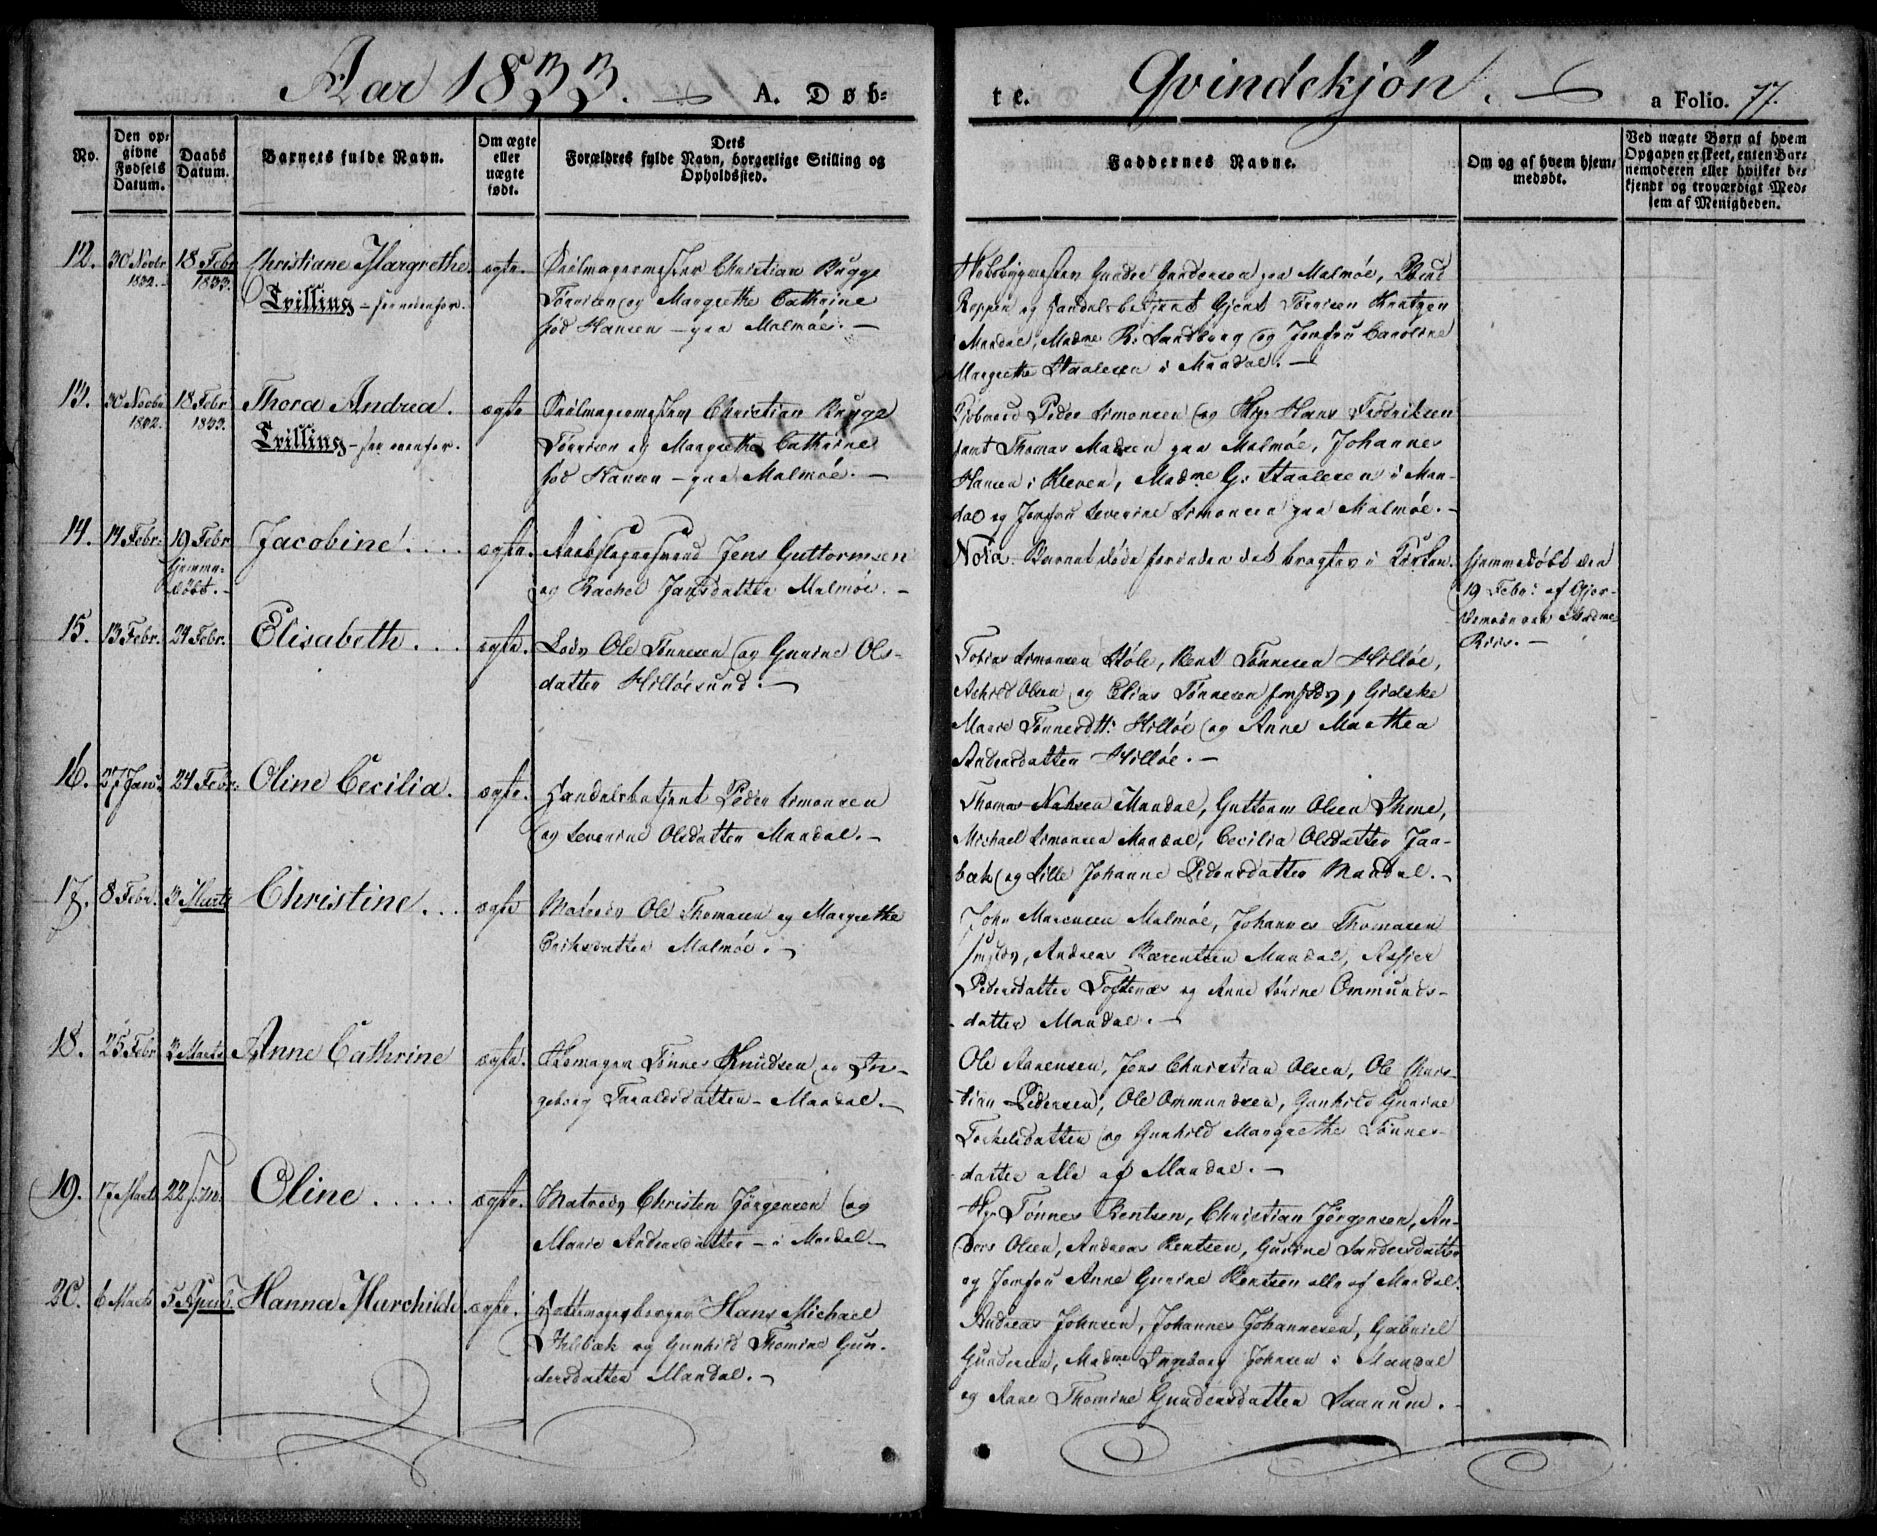 Aar 1833. A. Døb-
te. Qvindekjøn. a Folio. 77.
No.
Den op-
givne
Fødsels
Datum.
Daabs
Datum.
Barnets fulde Navn.
Om ægte
eller
uægte
født.
Dets
Forældres fulde Navn, borgerlige Stilling og
Opholdssted.
Faddernes Navne.
Om og af hvem hjem-
medøbt.
Ved uægte Børn af hvem
Opgaven er skeet, enten Bar-
nemoderen eller hvilket be-
kjendt og troværdigt Med-
lem af Menigheden.
12. 30 Novbr 1832. 18 Febr 1833. Christiane Margrethe. ægte.
Tvilling - see nenfor.
Seilmagermester Christian Bugge
Tørrisen og Margrethe Cathrine
fød Hansen - paa Malmøe. -
Gunder Gundersen paa Malmøe,
Reppen og Handelsbetjent Gjert Tørrisen
Mandal, Madme R: Sandborg og Jomfru Caroline
Margrethe Staalesen i Mandal. -
13. 30 Novbr 1832. 18 Febr 1833. Thora Andrea. ægte
Tvilling - see ovenfor.
Seilmagermester Christian Bugge
Tørrisen og Margrethe Cathrine
fød Hansen - paa Malmøe. -
Peder Simonsen og Hans Fredriksen
samt Thomas Madsen paa Malmøe, Johannes
Hansen i Kleven, Madme G: Staalesen i Man-
dal og Jomfru Severine Simonsen paa Malmøe. -
14. 14 Febr: 19 Febr
hjemme-
døbt. -
Jacobine. . . . ægte.
Jens Guttormsen
og Rachel Jansdatter Malmøe. -
Nota. Barnet døde forinden det bragtes i Kirken.
hjemmedøbt den
19 Febr: af Gjor-
demoderen Madme
Riis. -
15. 13 Febr. 24 Febr. Elisabeth. . . ægte.
Lods Ole Tønnesen og Gunine Ols-
datter Hilløesund. -
Tobias Simonsen Støle, Bent Tønnesen Hilløe,
Askild Olsen og Elias Tønnesen, Gidske
Marie Tønnesdtt: Hilløe og Anne Marthea
Andersdatter Hilløe. -
16. 27 Jan: 24 Febr: Oline Cecilia. ægte.
Handelsbetjent Peder Simonsen
og Severine Olsdatter Mandal. -
Thomas Mandal, Guttorm Olsen Ihme,
Michael Simonsen Mandal, Cecilia Olsdatter Jaa-
bæk og Lille Johanne Pedersdatter Mandal. -
17. 8 Febr. 3 Marts Christine. . . ægte
Matrods Ole Thomasen og Margrethe
Eriksdatter Malmøe. -
John Marcusen Malmøe, Johannes Thomasen
Andreas Bærentsen Mandal, Assier
Pedersdatter Toftenæs og Anne Sørine Ommunds-
datter Mandal. -
18. 25 Febr 3 Marts Anne Cathrine ægte.
Skomager Tønnes Knudsen og In-
geborg Taraldsdatter - Mandal. -
Ole Aanensen, Jens Christian Olsen, Ole Chris-
tian Pedersen, Ole Ommundsen, Gunhild Gurine
Torkelsdatter og Gunhild Margrethe Tønnes-
datter alle af Mandal. -
19. 17 Marts 22 Oline. . . . . ægte.
Matrods Christen Jørgensen og
Marie Andersdatter - i Mandal. -
Tønnes Bentsen, Christian Jørgensen, An-
ders Olsen, Andreas Bentsen, Gurine Sandersdatter
og Jomfru Anne Gurine Bentsen alle af Mandal.
20. 6 Marts 5 April. Hanna Marchilde. ægte.
Hans Michael
og Gunhild Thomine Gun-
dersdatter Mandal. -
Andreas Johnsen, Johannes Johannesen, Gabriel
Gundersen, Madme Ingeborg Johnsen i Mandal
og Anne Thomine Gundersdatter Saanum. -